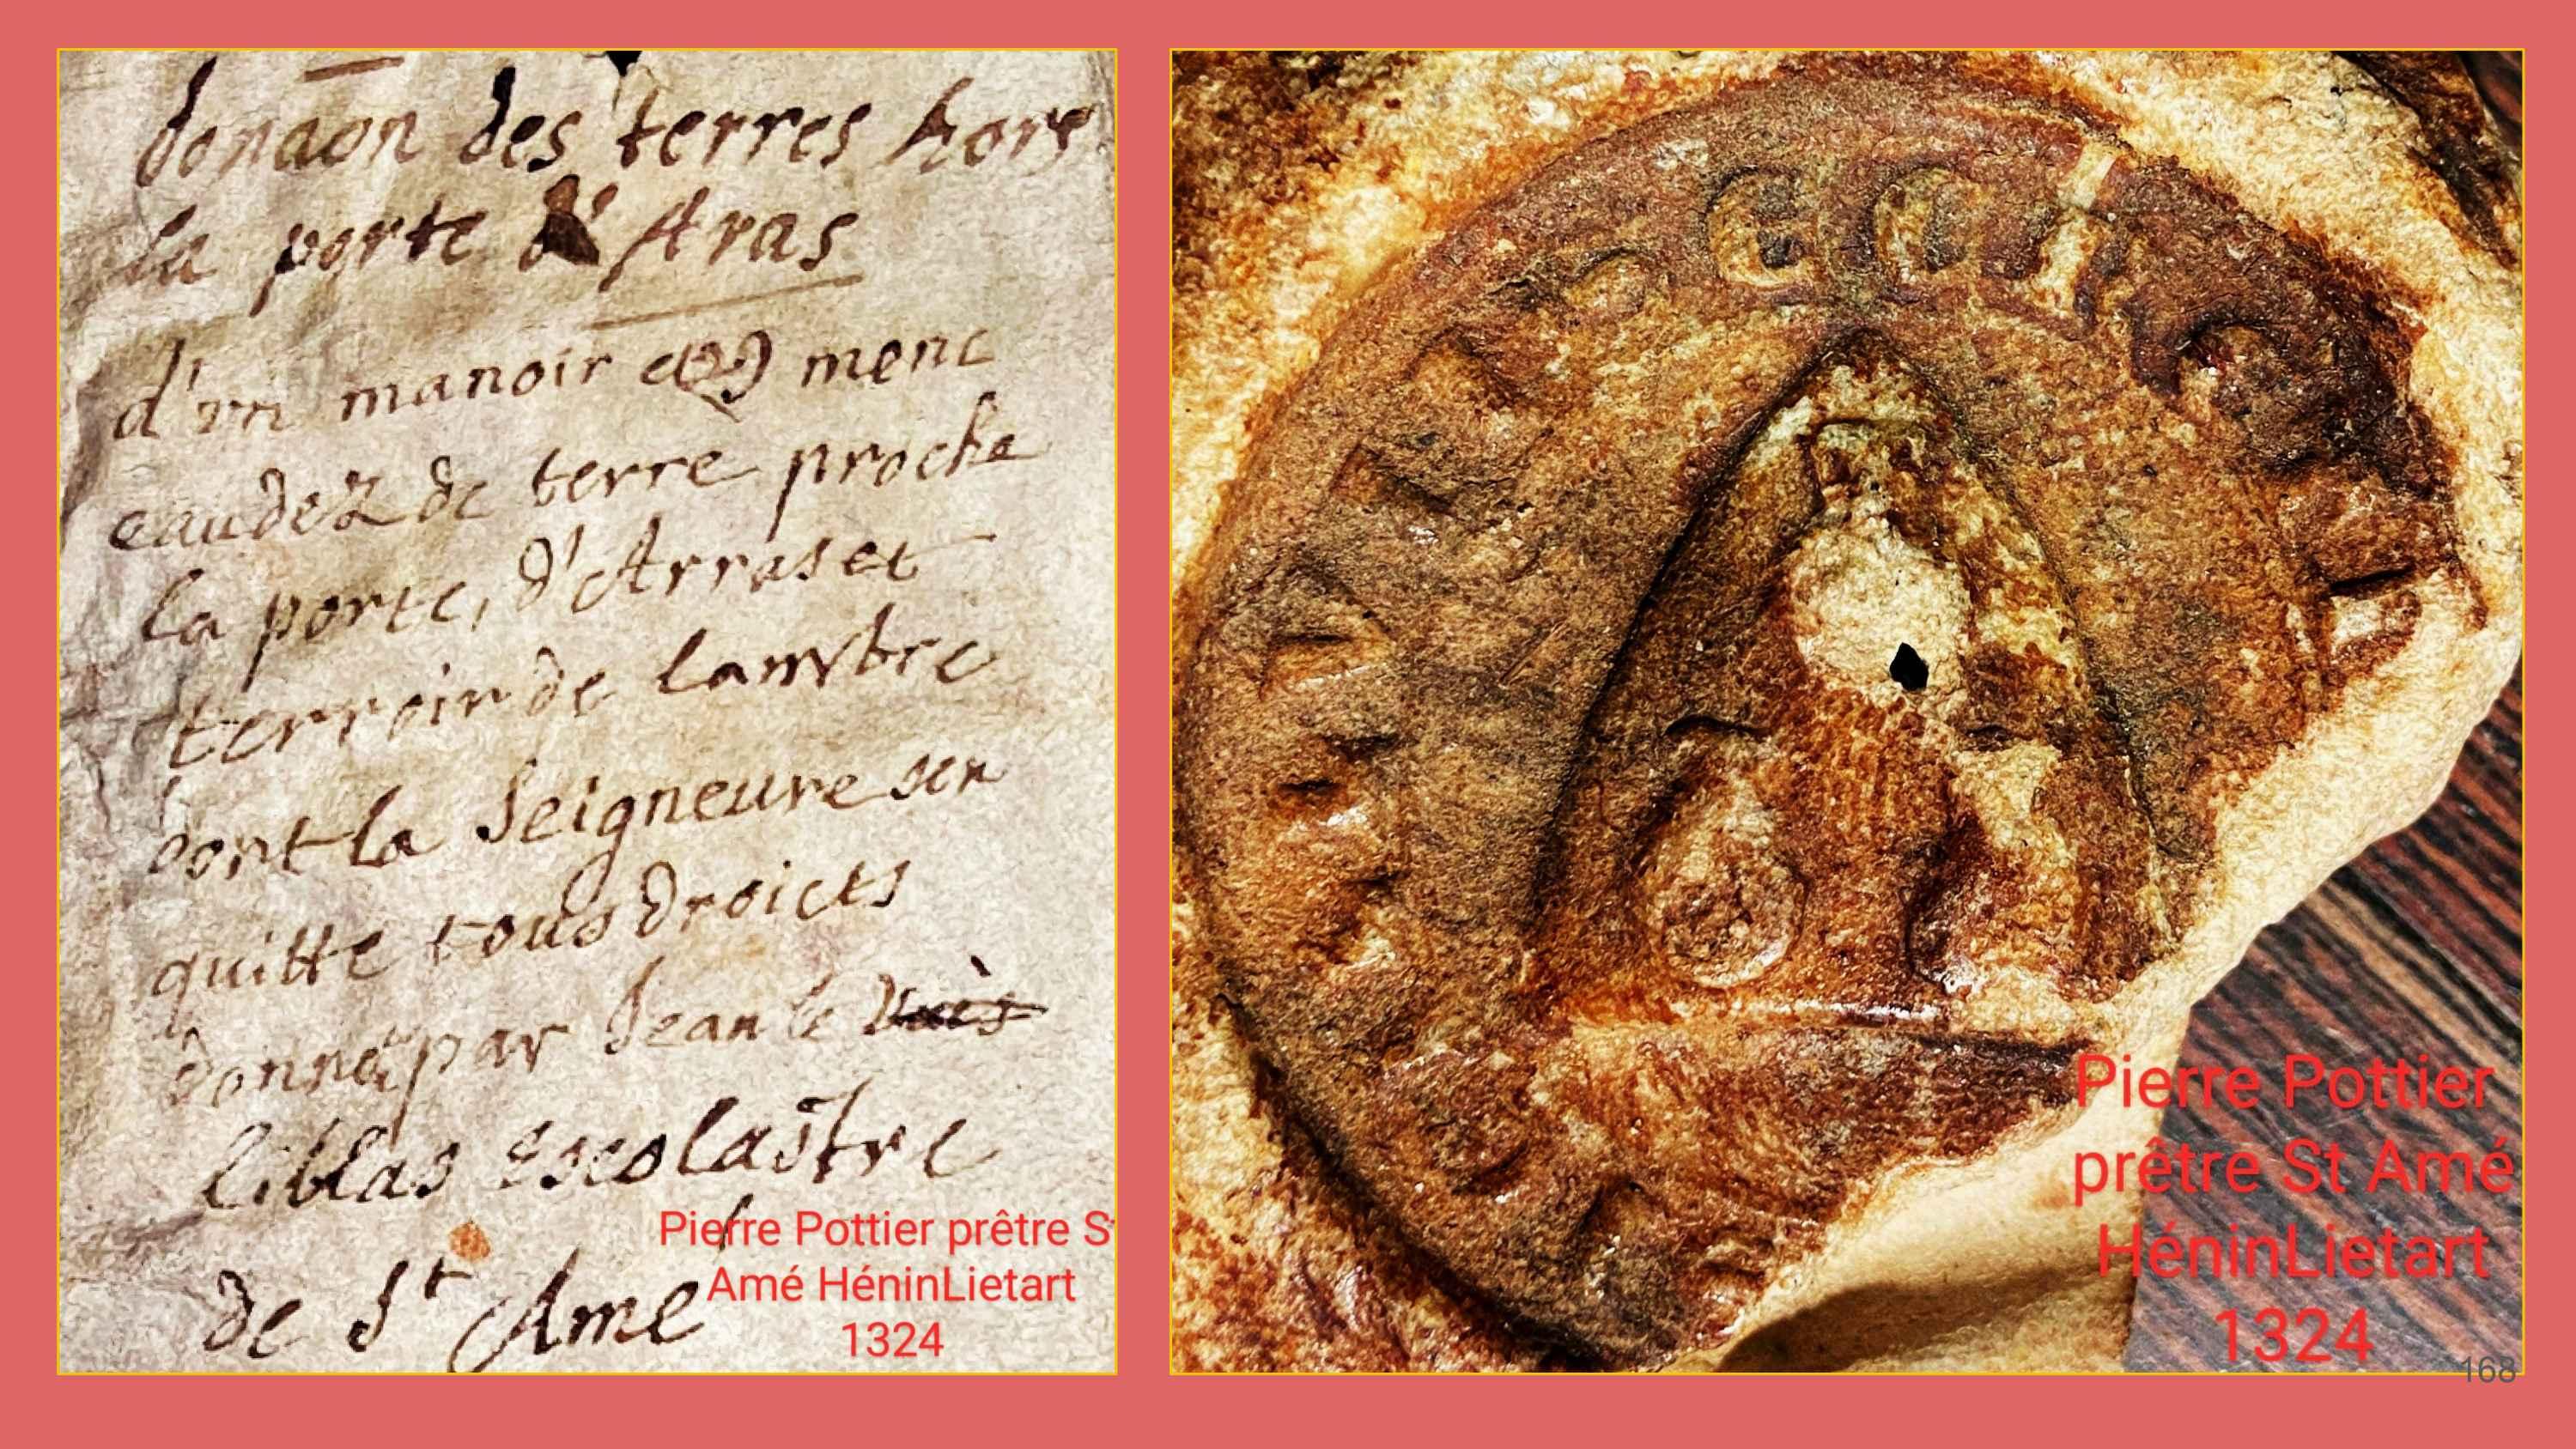 donaon des terres hors
la porte d'Aras
d'vn manoir menc
eaudez de terre proche
la porte, d'Arras et
terroir de lambre
dont la Seigneure
quitte tous droicts
donné par Jean le
liblas escolastre
de St Ame
Pierre Pottier prêtre S
Amé HéninLietart
1324
Pierre Pottier
prêtre St Amé
HéninLietart
1324
168